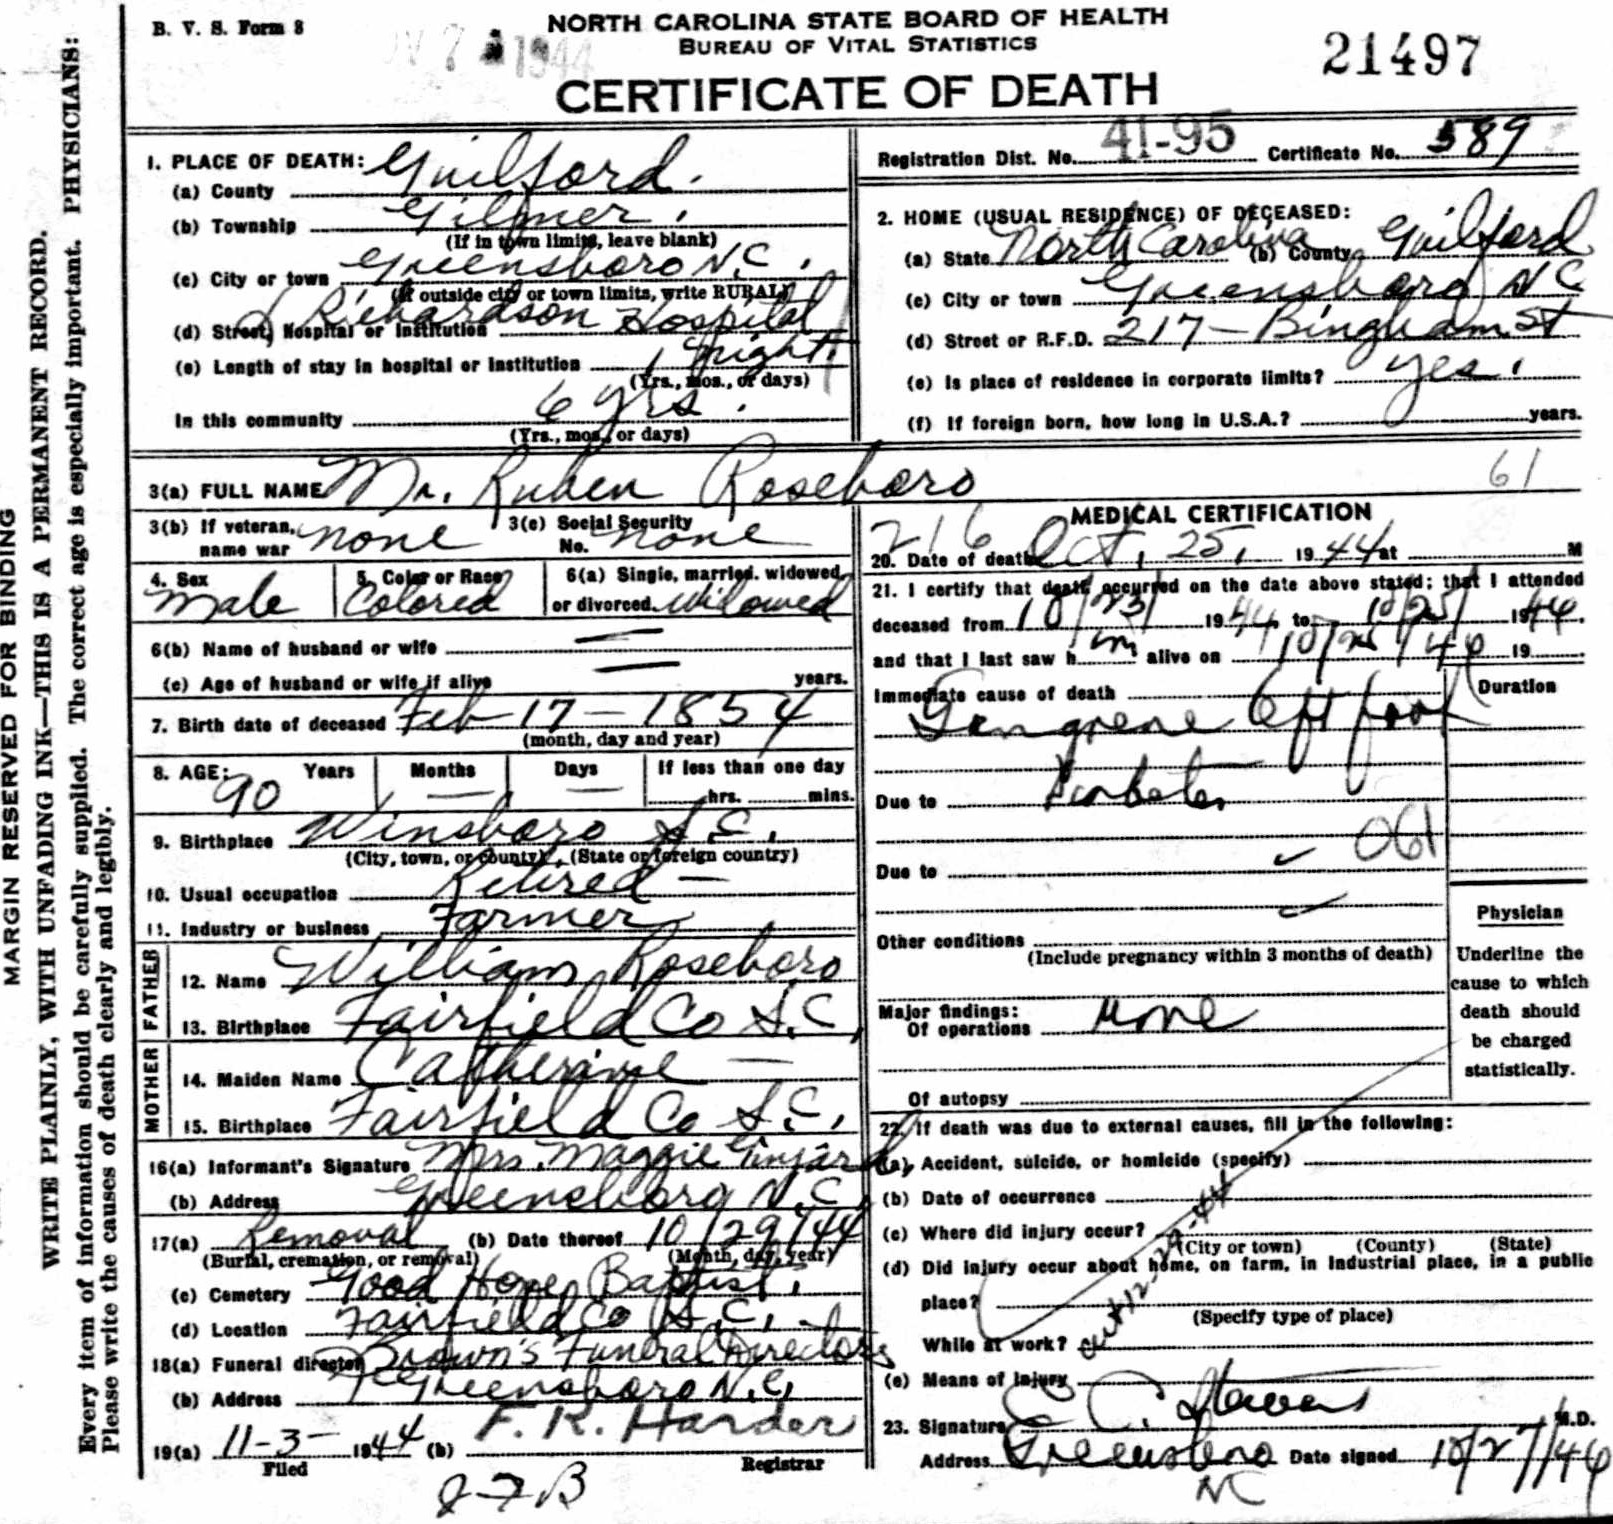 B. V. S. Form 8
NORTH CAROLINA STATE BOARD OF HEALTH
BUREAU OF VITAL STATISTICS
CERTIFICATE OF DEATH
21497
1944
MARGIN RESERVED FOR BINDING
WRITE PLAINLY, WITH UNFADING INK—THIS IS A PERMANENT RECORD.
Every item of information should be carefully supplied. The correct age is especially important. PHYSICIANS:
Please write the causes of death clearly and legibly.
Registration Dist. No. 41-95 Certificate No. 589
1. PLACE OF DEATH:
(a) County Guilford.
(b) Township Gilmer.
(If in town limits, leave blank)
(c) City or town Greensboro N.C.
(If outside city or town limits, write RURAL)
(d) Street, Hospital or Institution L Richardson Hospital
(e) Length of stay in hospital or institution 1 night.
(Yrs., mos., or days)
In this community 6 yrs.
(Yrs., mos., or days)
2. HOME (USUAL RESIDENCE) OF DECEASED:
(a) State North Carolina (b) County Guilford
(c) City or town Greensboro N C
(d) Street or R.F.D. 217 - Bingham St
(e) Is place of residence in corporate limits? yes.
(f) If foreign born, how long in U.S.A.? years.
3(a) FULL NAME Mr. Ruben Roseboro
61
3(b) If veteran, name war none 3(c) Social Security No. none
4. Sex Male 5. Color or Race Colored 6(a) Single, married, widowed, or divorced. Widowed
6(b) Name of husband or wife
(c) Age of husband or wife if alive years.
7. Birth date of deceased Feb 17 - 1854
(month, day and year)
8. AGE: Years Months Days If less than one day
90 — — hrs. mins.
9. Birthplace Winsboro S.C.
(City, town, or county) (State or foreign country)
10. Usual occupation Retired —
11. Industry or business Farmer
FATHER
12. Name William Roseboro
13. Birthplace Fairfield Co S.C.
MOTHER
14. Maiden Name Catherine —
15. Birthplace Fairfield Co S.C.
16(a) Informant's Signature Mrs. Maggie
(b) Address Greensboro N.C.
17(a) Removal (b) Date thereof 10/29/44
(Burial, cremation, or removal) (Month, day, year)
(c) Cemetery Good Hope Baptist.
(d) Location Fairfield Co S.C.
18(a) Funeral director Brown's Funeral Directors
(b) Address Greensboro N.C.
19(a) 11-3- 1944 (b) F. K. Harder
Filed Registrar
J-7-B
MEDICAL CERTIFICATION
216
20. Date of death Oct. 25, 1944 at M
21. I certify that death occurred on the date above stated; that I attended
deceased from 10/23/ 1944, to 10/25/ 1944,
and that I last saw him alive on 10/25/44 19
Immediate cause of death Duration
Gangrene left foot
Due to Diabetes
061
Due to
Other conditions
(Include pregnancy within 3 months of death)
Major findings:
Of operations None
Of autopsy
Physician
Underline the
cause to which
death should
be charged
statistically.
22. If death was due to external causes, fill in the following:
(a) Accident, suicide, or homicide (specify)
(b) Date of occurrence
(c) Where did injury occur?
(City or town) (County) (State)
(d) Did injury occur about home, on farm, in industrial place, in a public
place?
(Specify type of place)
While at work?
(e) Means of Injury
23. Signature M.D.
Address Greensboro NC Date signed 10/27/44